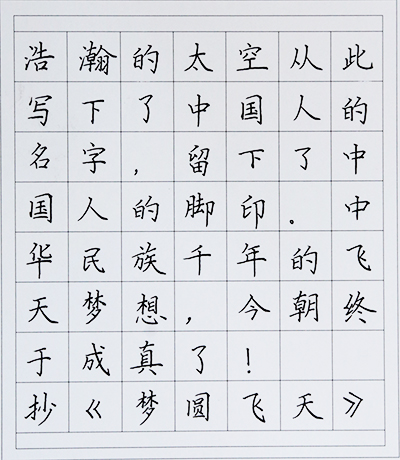 浩瀚的太空从此
写下了中国人的
名字，留下了中
国人的脚印。中
华民族千年的飞
天梦想，今朝终
于成真了！
抄《梦圆飞天》